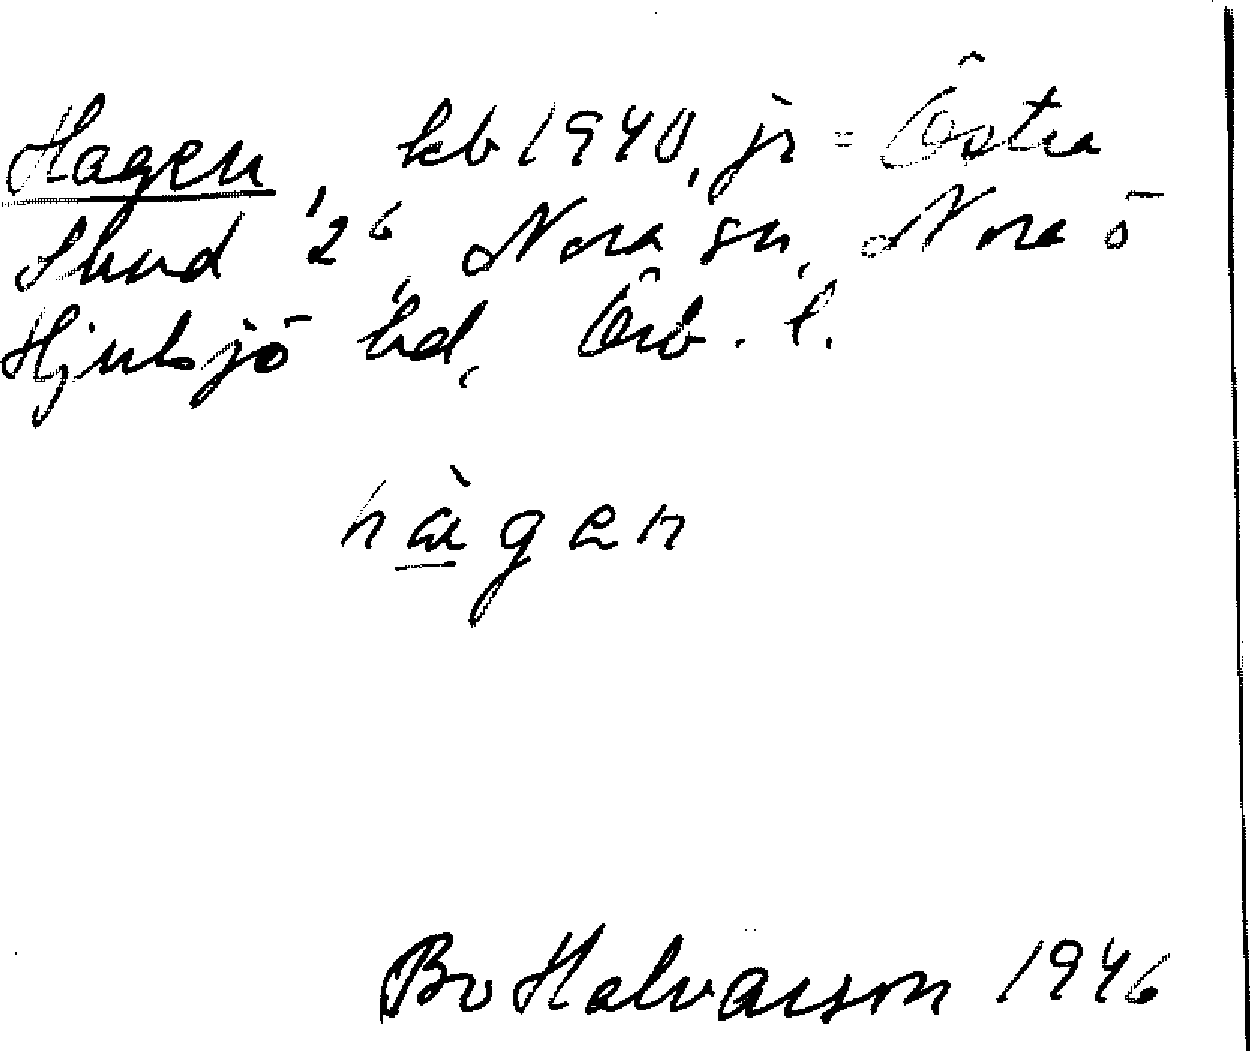 Hagen, kb 1940, jr = Östra
Skud 1/26, Nora sn, Nora o
Hjulsjö hd, Örb. l.
hàgen
Bo Halvarson 1946